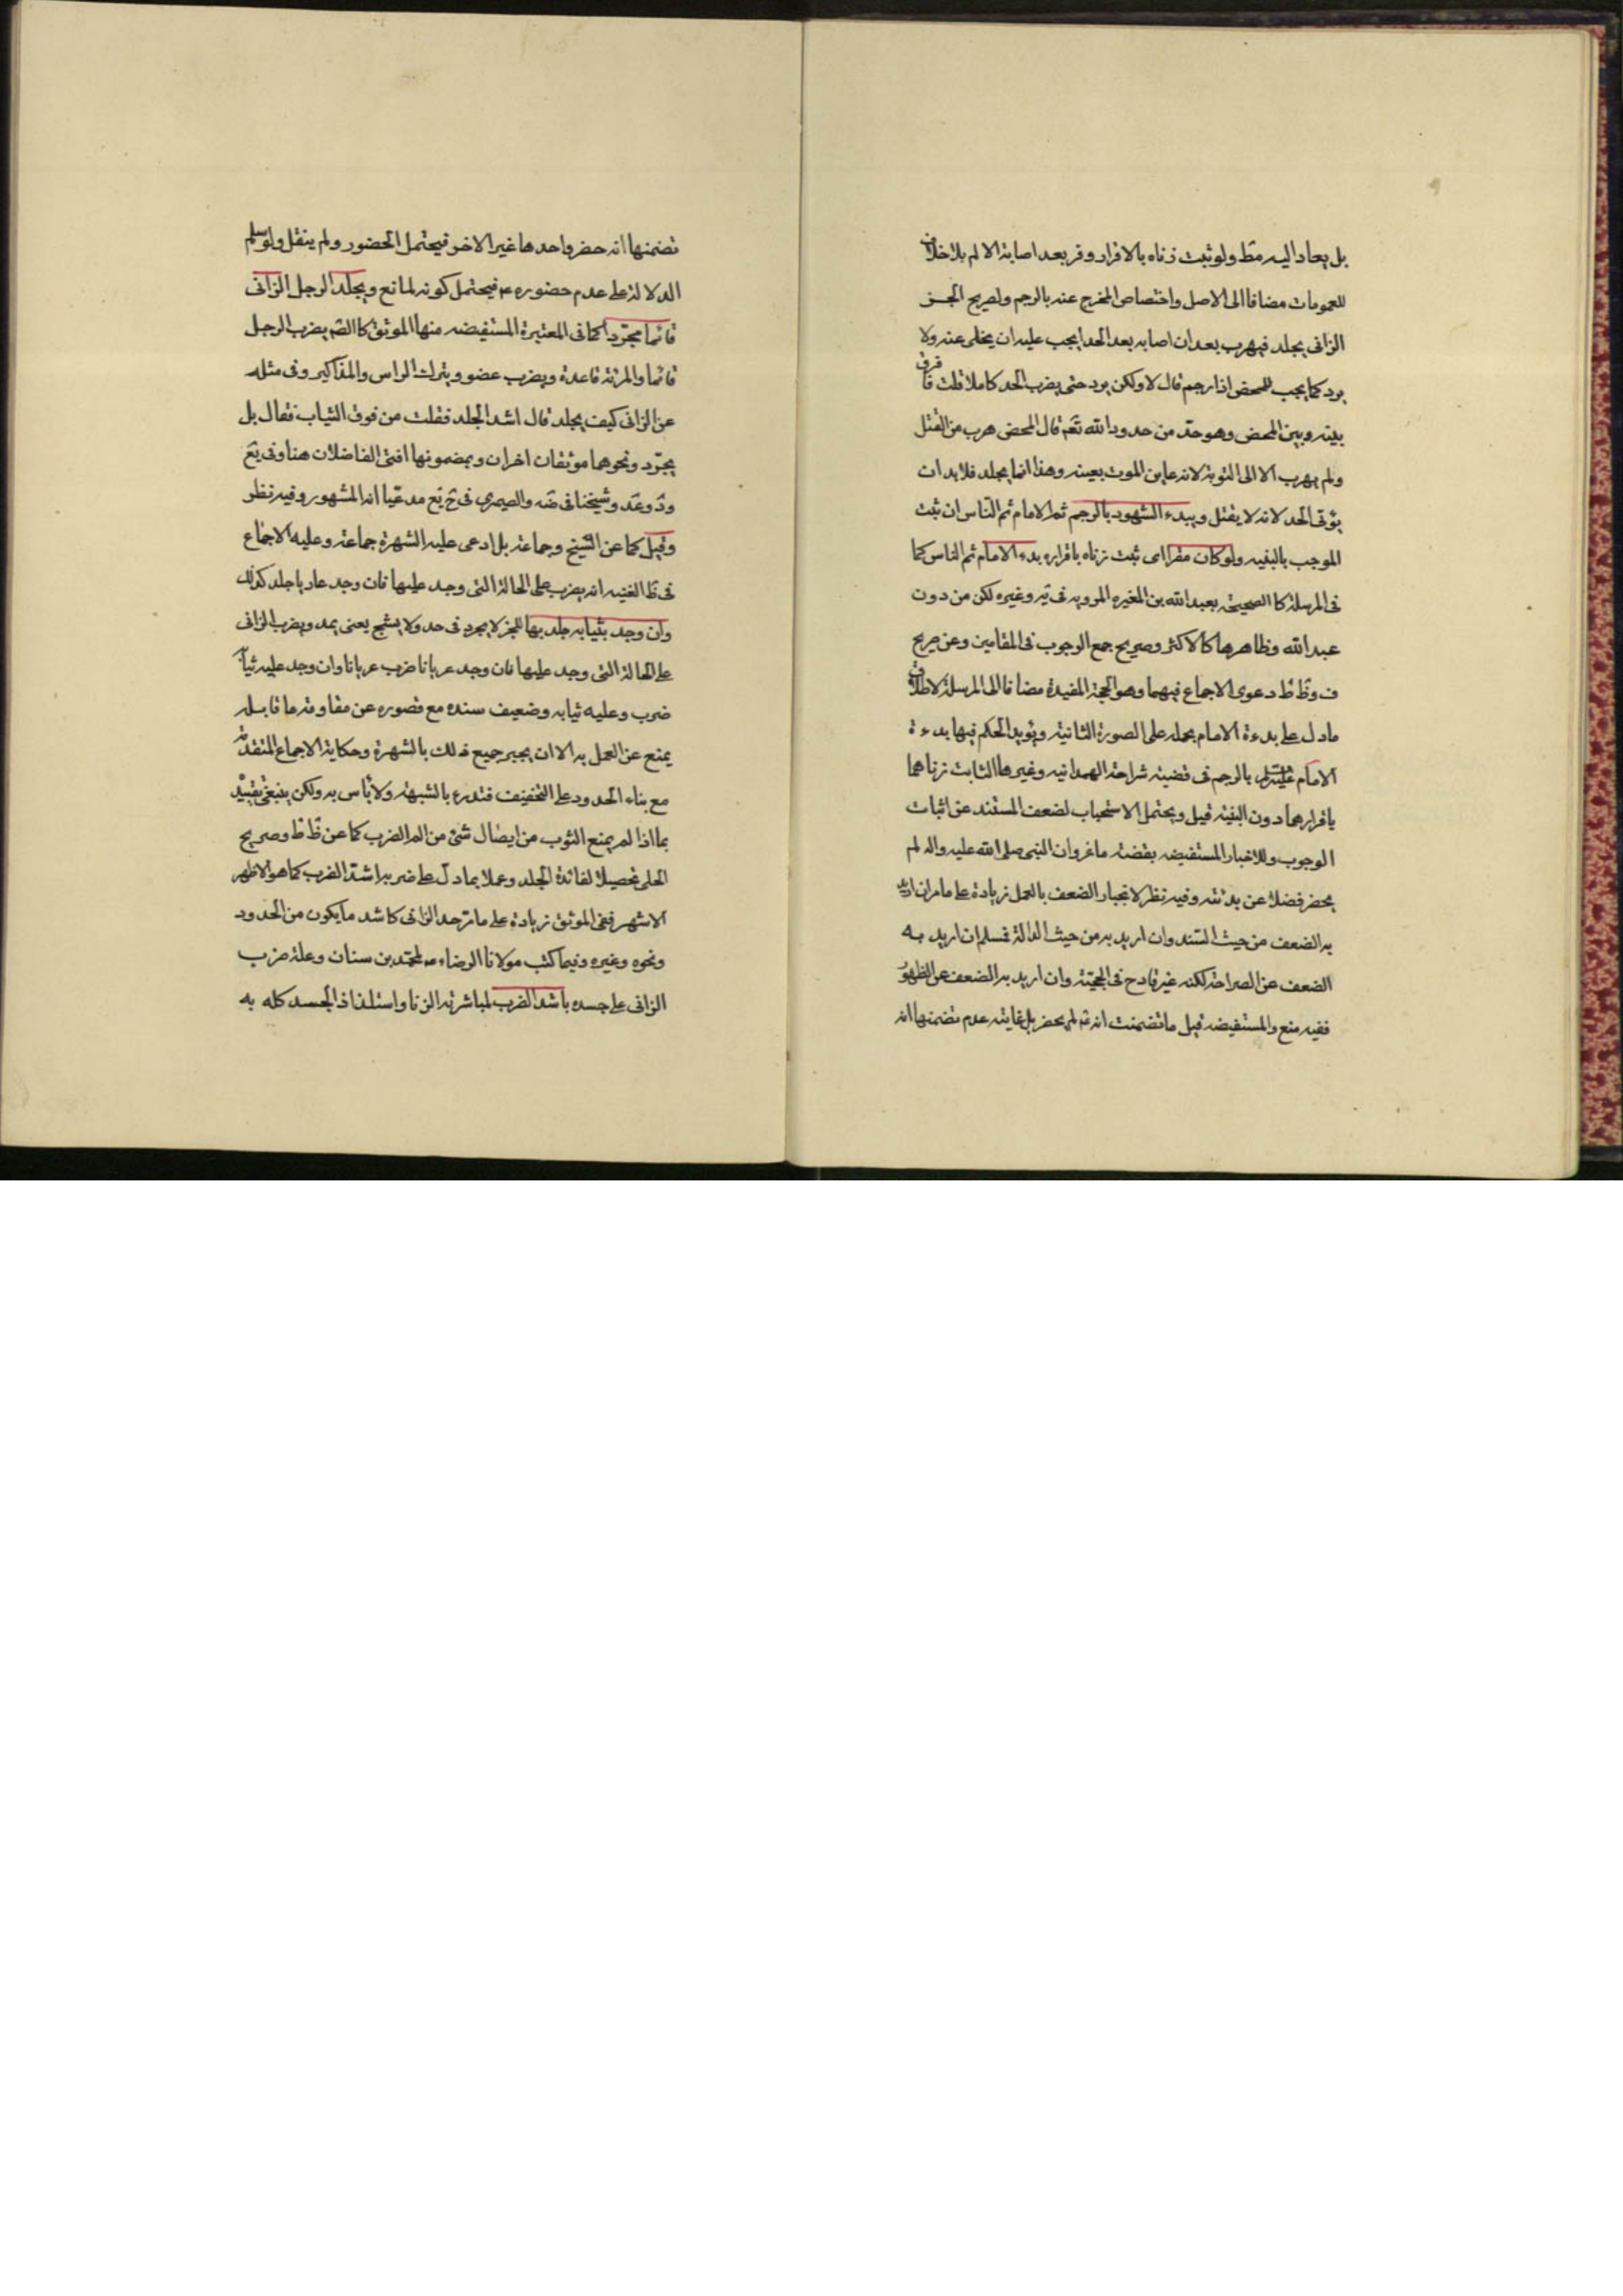 بل يعاد اليه مط ولو ثبت زناه بالاقرار وفر بعد اصابة الالم بلا خلاف
للعمومات مضافا الى الاصل واختصاص المخرج عنه بالرجم ولصريح الخبر
الزانى يجلد فيهرب بعد ان اصابه بعد الحد ايجب عليه ان يخلى عنه ولا
يرد كما يجب للمحصن اذا رجم قال لا ولكن يرد حتى يضرب الحد كاملا قلت فما فرق
بينه وبين المحصن وهو حد من حدود الله تعم قال المحصن هرب من القتل
ولم يهرب الا الى التوبة لانه عاين الموت بعينه وهذا انما يجلد فلابد ان
يؤتى الحد لانه لا يقتل ويبدء الشهود بالرجم ثم الامام ثم الناس ان ثبت
الموجب بالبينه ولو كان مقرا اى ثبت زناه باقراره بدء الامام ثم الناس كما
فى المرسلة كا الصحيحة بعبد الله بن المغيره المرويه فى يه وغيره لكن من دون
عبد الله وظاهرها كالاكثر وصريح جمع الوجوب فى المقامين وعن صريح
ف وظ ط دعوى الاجماع فيهما وهو الحجة المقيدة مضافا الى المرسلة لاطلاق
ما دل على بدءة الامام بحمله على الصورة الثانية ويؤيد الحكم فيها بدءة
الامام عليه السلم بالرجم فى قضية شراحة الهمدانيه وغيرها الثابت زناهما
باقرارهما دون البينة قيل ويحتمل الاستحباب لضعف المستند عن اثبات
الوجوب وللاخبار المستفيضه بقصة ماعز وان النبى صلى الله عليه واله لم
يحضر فضلا عن بدئته وفيه نظر لانجبار الضعف بالعمل زيادة على ما مر ان اريد
به الضعف من حيث السند وان اريد به من حيث الدالة فمسلم ان اريد به
الضعف عن الصراحة لكنه غير قادح فى الحجية وان اريد به الضعف عن الظهور
ففيه منع والمستفيضه قيل ما تضمنت انه لم يحضر بل غايته عدم تضمنها انه
تضمنها انه حضر واحدها غير الاخر فيحتمل الحضور ولم ينقل ولو سلم
الدلالة على عدم حضوره ص فيحتمل كونه لمانع ويجلد الرجل الزانى
قائما مجردا كما فى المعتبرة المستفيضه منها الموثق كا الصم يضرب الرجل
قائما والمرئة قاعدة ويضرب عضو ويترك الراس والمذاكير وفى مثله
عن الزانى كيف يجلد قال اشد الجلد فقلت من فوق الثياب فقال بل
يجرد ونحوهما موثقان اخران وبمضمونها افتى الفاضلان هنا وفى يع
ود وعد وشيخنا فى ضه والصيمرى فى ح يع مدعيا انه المشهور وفيه نظر
وقيل كما عن الشيخ وجماعة بل ادعى عليه الشهرة جماعة وعليه الاجماع
فى ظ الغنيه انه يضرب على الحالة التى وجد عليها فان وجد عاريا جلد كذلك
وان وجد بثيابه جلد بها للخبر لا يجرد فى حد ولا يشبح يعنى يمد ويضرب الزانى
على الحالة التى وجد عليها فان وجد عريانا ضرب عريانا وان وجد عليه ثيابه
ضرب وعليه ثيابه وضعيف سنده مع قصوره عن مقاومة ما قابله
يمنع عن العمل به الا ان يجبر جميع ذلك بالشهرة وحكاية الاجماع المتقدمة
مع بناء الحدود على التخفيف فتدرء بالشبهة ولا بأس به ولكن ينبغى تقييده
بما اذا لم يمنع الثوب من ايصال شئ من الم الضرب كما عن ظ ط وصريح
الحلى تحصيلا لفائدة الجلد وعملا بما دل على ضربه اشد الضرب كما هو الاظهر
الاشهر ففى الموثق زيادة على ما مر حد الزانى كاشد ما يكون من الحدود
ونحوه وغيره وفيما كتب مولانا الرضاء ص لمحمد بن سنان وعلة ضرب
الزانى على جسده باشد الضرب لمباشرته الزنا واستلذاذ الجسد كله به